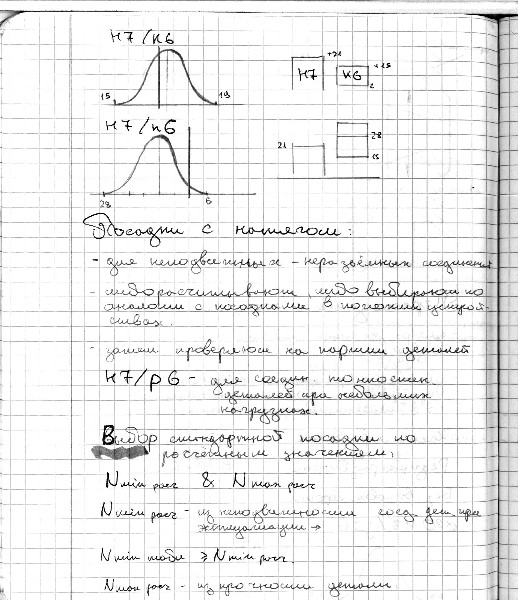 H7/к6
+21
H7
к6
+15
2
15
19
H7/п6
21
28
15
28
6
Посадки с натягом:
- для неподвижных - неразъёмных соединений
- либо рассчитывают, либо выбирают по
аналогии с посадками в похожих устрой-
ствах.
- затем проверяют на партии деталей
H7/р6 - для соедин. тонкостен.
деталей при небольших
нагрузках.
Выбор стандартной посадки по
расчётным значениям:
Nmin расч & Nmax расч
Nmin расч - из неподвижности соед. дет. при
эксплуатации →
Nmin табл ≥ Nmin расч.
Nmax расч - из прочности детали